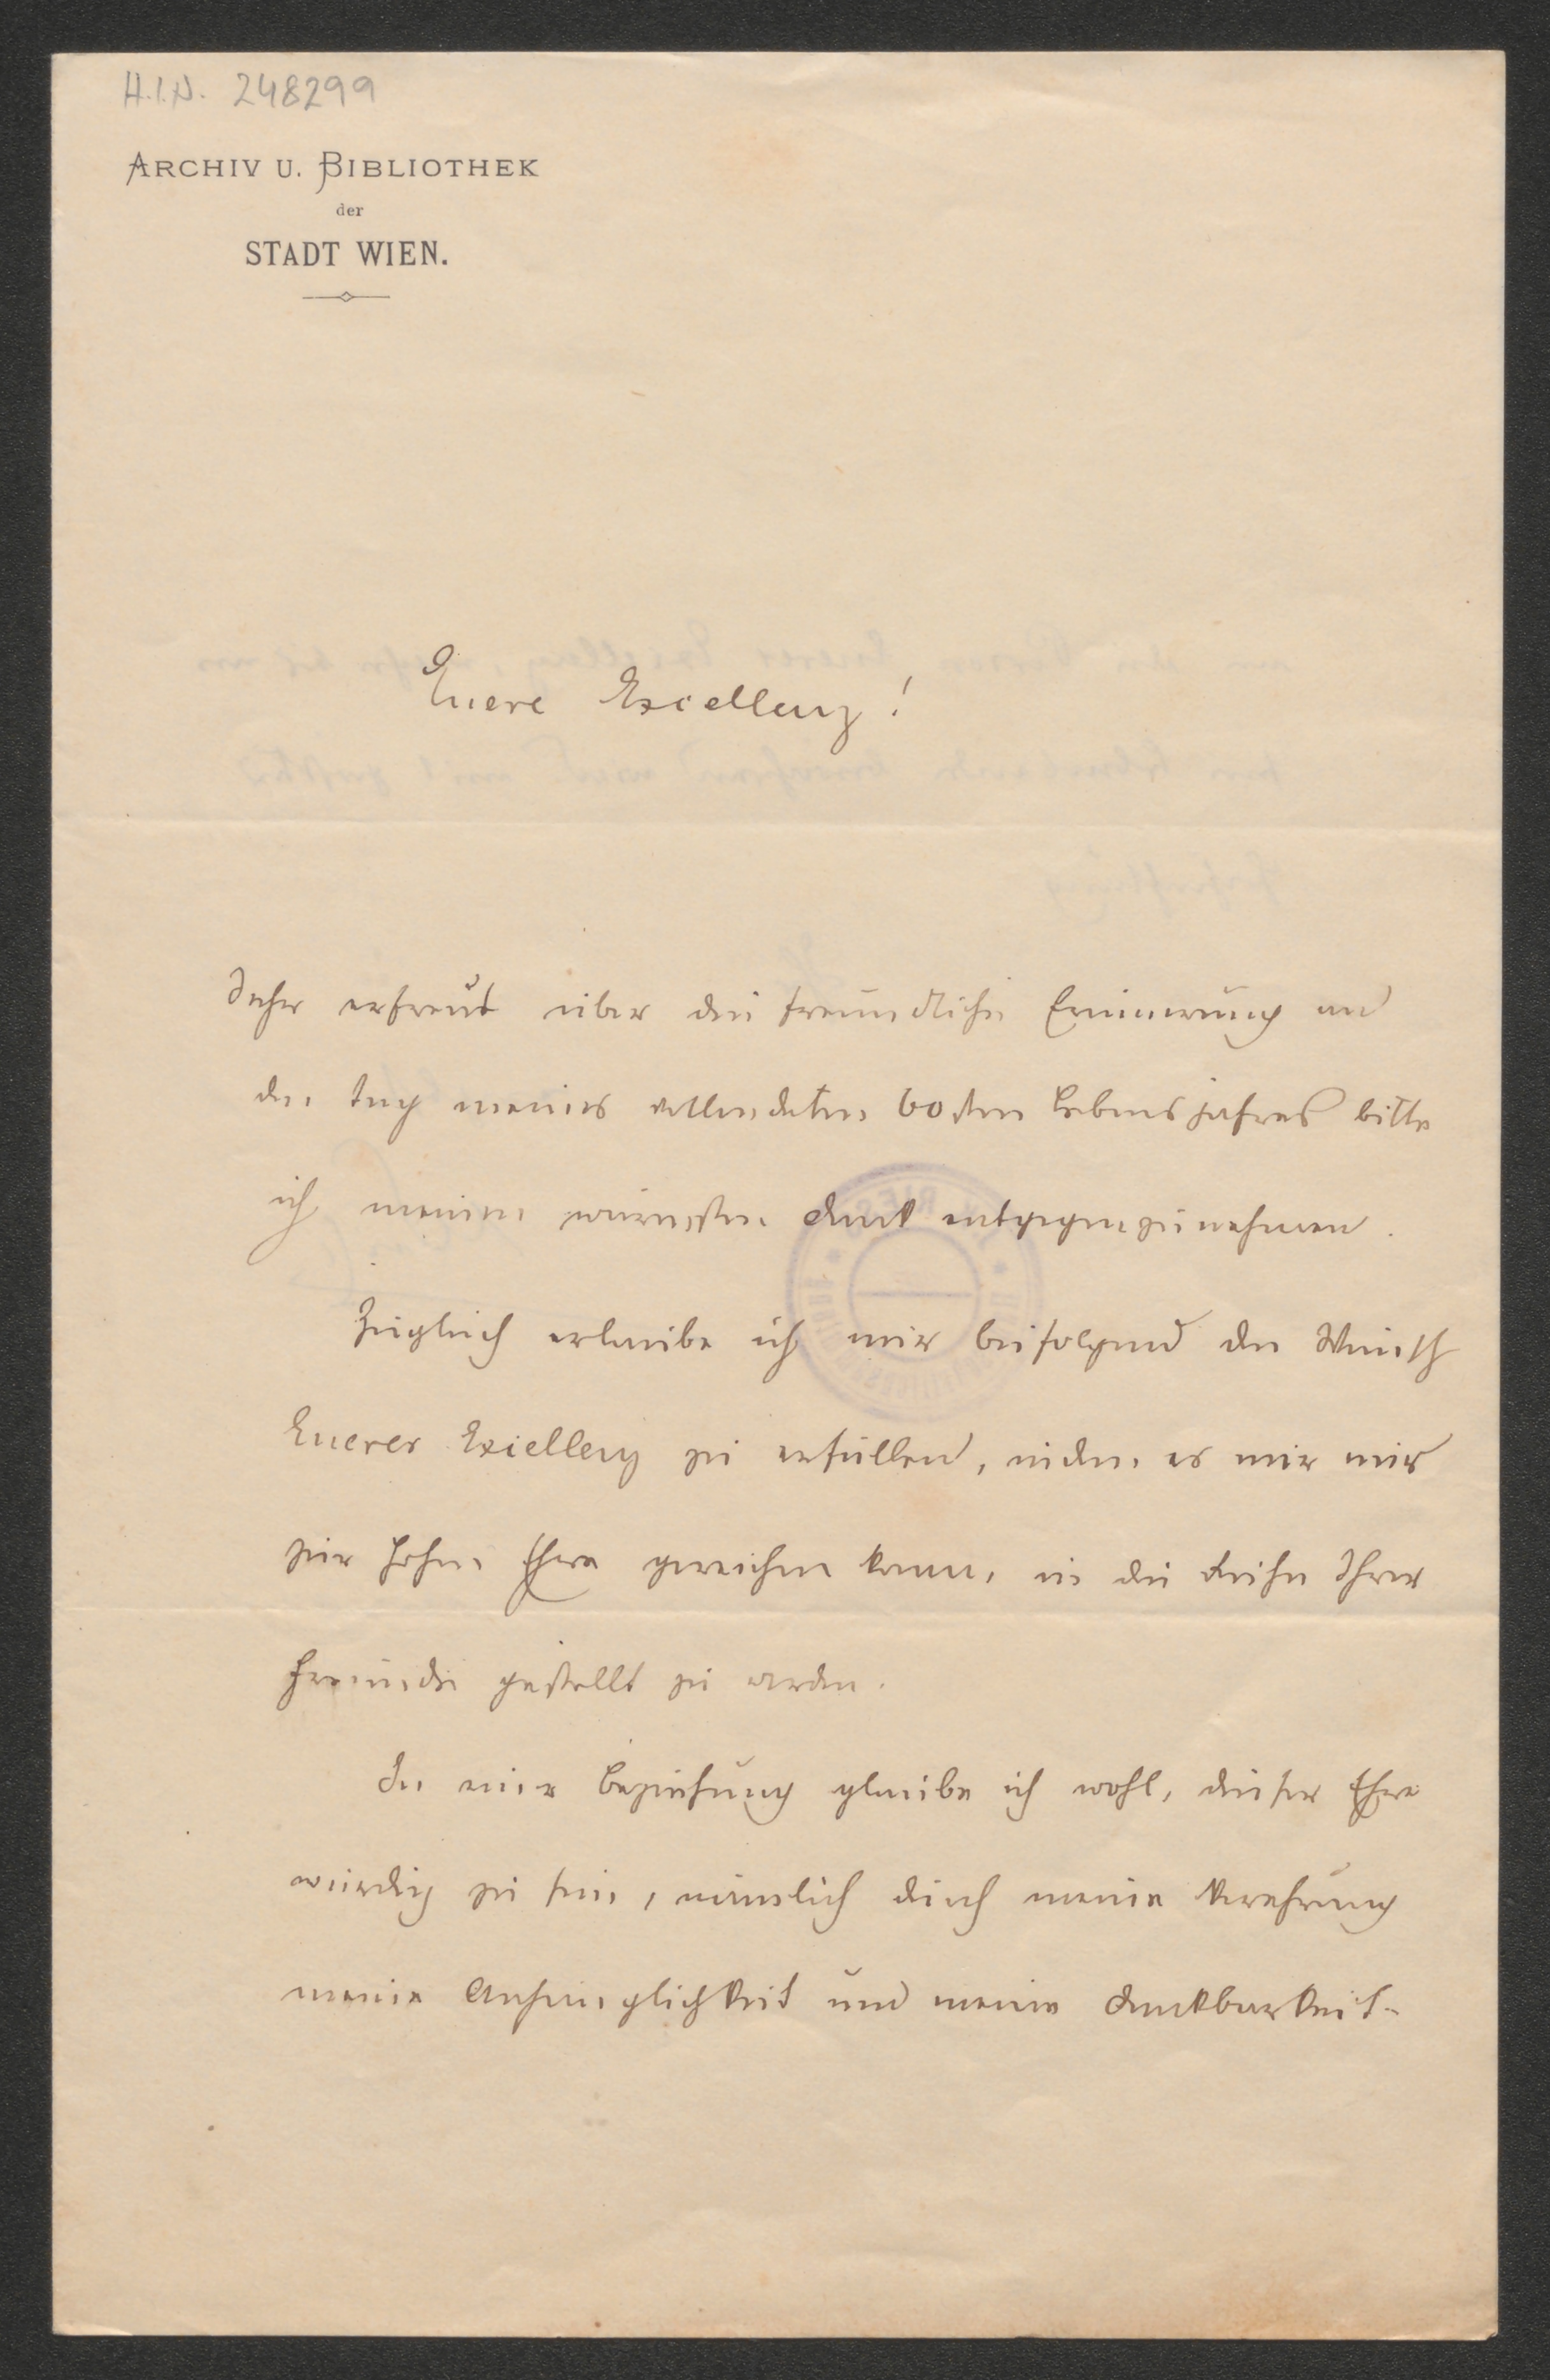 H.I.N. 248299
ARCHIV U. BIBLIOTHEK
der
STADT WIEN.
Euere Excellenz!
Sehr erfreut über die freundliche Erinnerung an
den Tag meines vollendeten 60sten Lebensjahres bitte
ich meinen wärmsten Dank entgegenzunehmen.
Zugleich erlaube ich mir beifolgend den Wunsch
Euerer Excellenz zu erfüllen, indem es mir nur
zur hohen Ehre gereichen kann, in die Reihe Ihrer
Freunde gestellt zu werden.
In einer Beziehung glaube ich wohl, dieser Ehre
würdig zu sein, nämlich durch meine Verehrung
meine Anhänglichkeit und meine Dankbarkeit